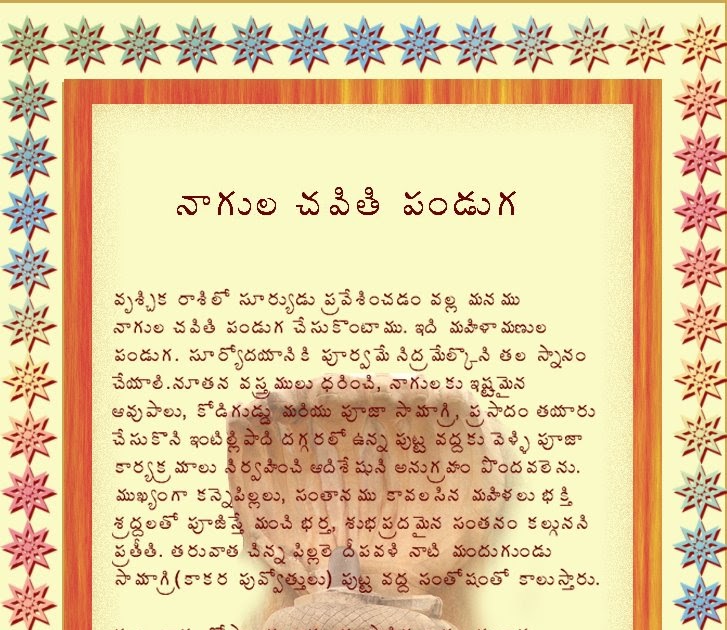 నాగుల చవితి పండుగ
వృశ్చిక రాశిలో సూర్యుడు ప్రవేశించడం వల్ల మనము
నాగుల చవితి పండుగ చేసుకొంటాము. ఇది మహిళామణుల
పండుగ. సూర్యోదయానికి పూర్వమే నిద్రమేల్కొని తల స్నానం
చేయాలి.నూతన వస్త్రములు ధరించి, నాగులకు ఇష్టమైన
ఆవుపాలు, కోడిగుడ్డు మరియు పూజా సామాగ్రి, ప్రసాదం తయారు
చేసుకొని ఇంటిల్లిపాది దగ్గరలో ఉన్న పుట్ట వద్దకు వెళ్ళి పూజా
కార్యక్రమాలు నిర్వహించి ఆదిశేషుని అనుగ్రహం పొందవలెను.
ముఖ్యంగా కన్నెపిల్లలు, సంతానము కావలసిన మహిళలు భక్తి
శ్రద్దలతో పూజిస్తే మంచి భర్త, శుభప్రదమైన సంతనం కల్గునని
ప్రతీతి. తరువాత చిన్న పిల్లలె దీపవళి నాటి మందుగుండు
సామాగ్రి(కాకర పువ్వోత్తులు) పుట్ట వద్ద సంతోషంతో కాలుస్తారు.